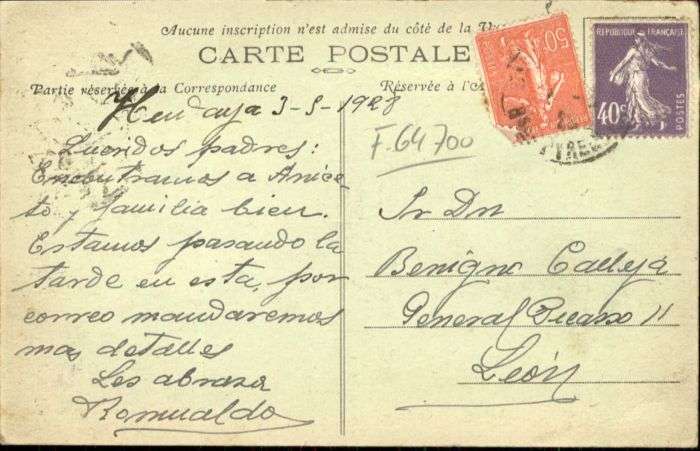 Aucune inscription n'est admise du côté de la
CARTE POSTALE
Partie réservée à la Correspondance
Réservée à l'A
Hendaya 3-S-1928
Queridos padres:
Encontramos a Anice-
to y familia bien.
Estamos pasando la
tarde en esta, por
correo mandaremos
mas detalles
Les abraza
Romualdo
F. 64700
Sr Dn
Benigno Calleja
General Picasso 11
León
50c
REPUBLIQUE FRANÇAISE
40c
POSTES